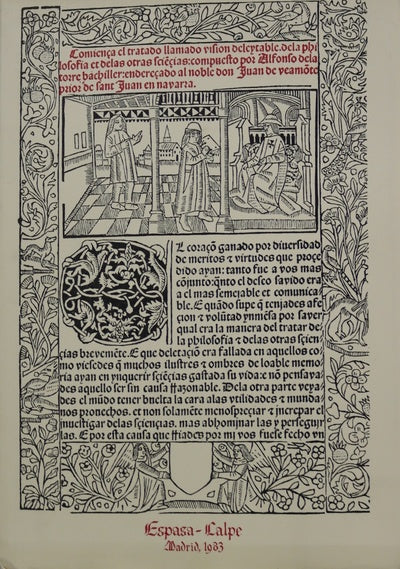 Comiença el tratado llamado vision deleytable. dela phi
losofia et delas otras sciẽçias: compuesto por Alfonso dela
torre bachiller: endereçado al noble don Juan de veamõte
prior de sant Juan en navarra.
EL coraçõ ganado por diuersidad
de meritos et virtudes que proçe
dido ayan: tanto fue a vos mas
cõjunto: quãto el desseo sauido era
a el mas semejable et comunica
ble. E quãdo supe q̃ teniades afe
çion et volũtad ynmẽsa por saver
qual era la manera del tratar de
la philosofia et delas otras sciẽ
çias brevemẽte. E que deletaçiõ era fallada en aquellos co
mo viesedes q̃ muchos ilustres et ombres de loable memo
ria ayan en ynquerir sciẽçias gastada su vida: et nõ pensava
des aquello ser sin causa Razonable. Dela otra parte veya
des el mũdo tener buelta la cara alas vtilidades et munda
nos prouechos. et non solamẽte menospreçiar et increpar el
inuestigar delas sçiençias. mas abhominar las y persegnir
las. E por esta causa que fue por mi vos fuese fecho vn
Espasa-Calpe
Madrid, 1983